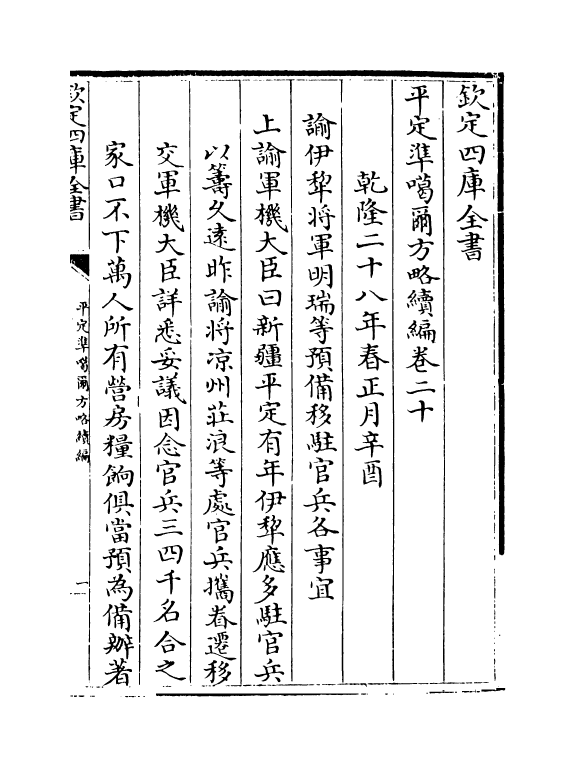 欽定四庫全書
平定準噶爾方略續編卷二十
乾隆二十八年春正月辛酉
諭伊犂將軍明瑞等預備移駐官兵各事宜
上諭軍機大臣曰新疆平定有年伊犂應多駐官兵
以籌久遠昨諭將凉州莊浪等處官兵攜眷遷移
交軍機大臣詳悉妥議因念官兵三四千名合之
家口不下萬人所有營房糧餉俱當預為備辦著
欽定四庫全書
平定準噶爾方略續編
一